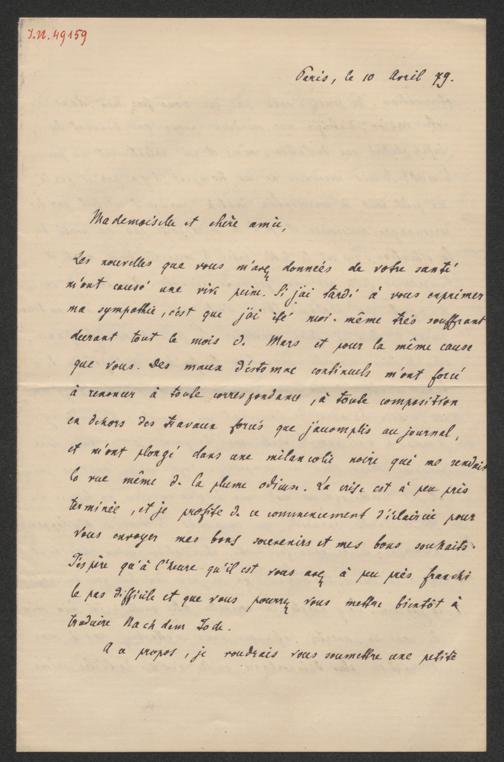 I.N. 49159
Paris, le 10 Avril 79.
Mademoiselle et chère amie,
Les nouvelles que vous m'avez données de votre santé
m'ont causé une vive peine. Si j'ai tardé à vous exprimer
ma sympathie, c'est que j'ai été moi-même très souffrant
durant tout le mois de Mars et pour la même cause
que vous. Des maux d'estomac continuels m'ont forcé
à renoncer à toute correspondance, à toute composition
en dehors des travaux forcés que j'accomplis au journal,
et m'ont plongé dans une mélancolie noire qui me rendait
la vue même de la plume odieuse. La crise est à peu près
terminée, et je profite de ce commencement d'éclaircie pour
vous envoyer mes bons souvenirs et mes bons souhaits.
J'espère qu'à l'heure qu'il est vous avez à peu près franchi
le pas difficile et que vous pourrez vous mettre bientôt à
traduire Nach dem Tode.
A ce propos, je voudrais vous soumettre une petite